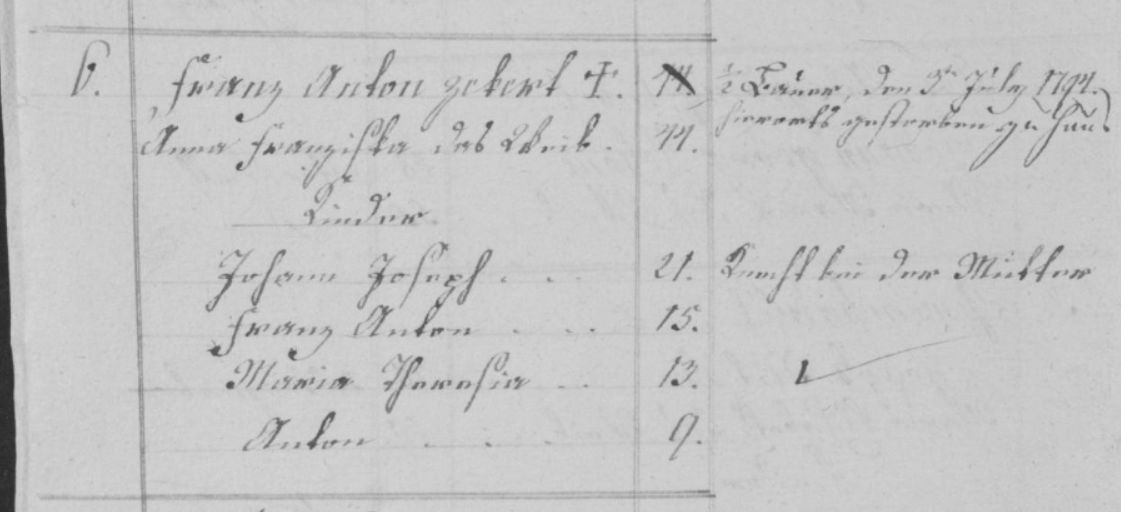 6. Franz Anton Eckert ✝. ½ Bauer, den 9t July 1794.
hierorts gestorben zu Haus
Anna Franziska das Weib. 44.
Kinder
Johann Joseph . . . 21. Knecht bei der Mutter
Franz Anton . . . 15.
Maria Theresia . . 13. 1
Anton . . . 9.